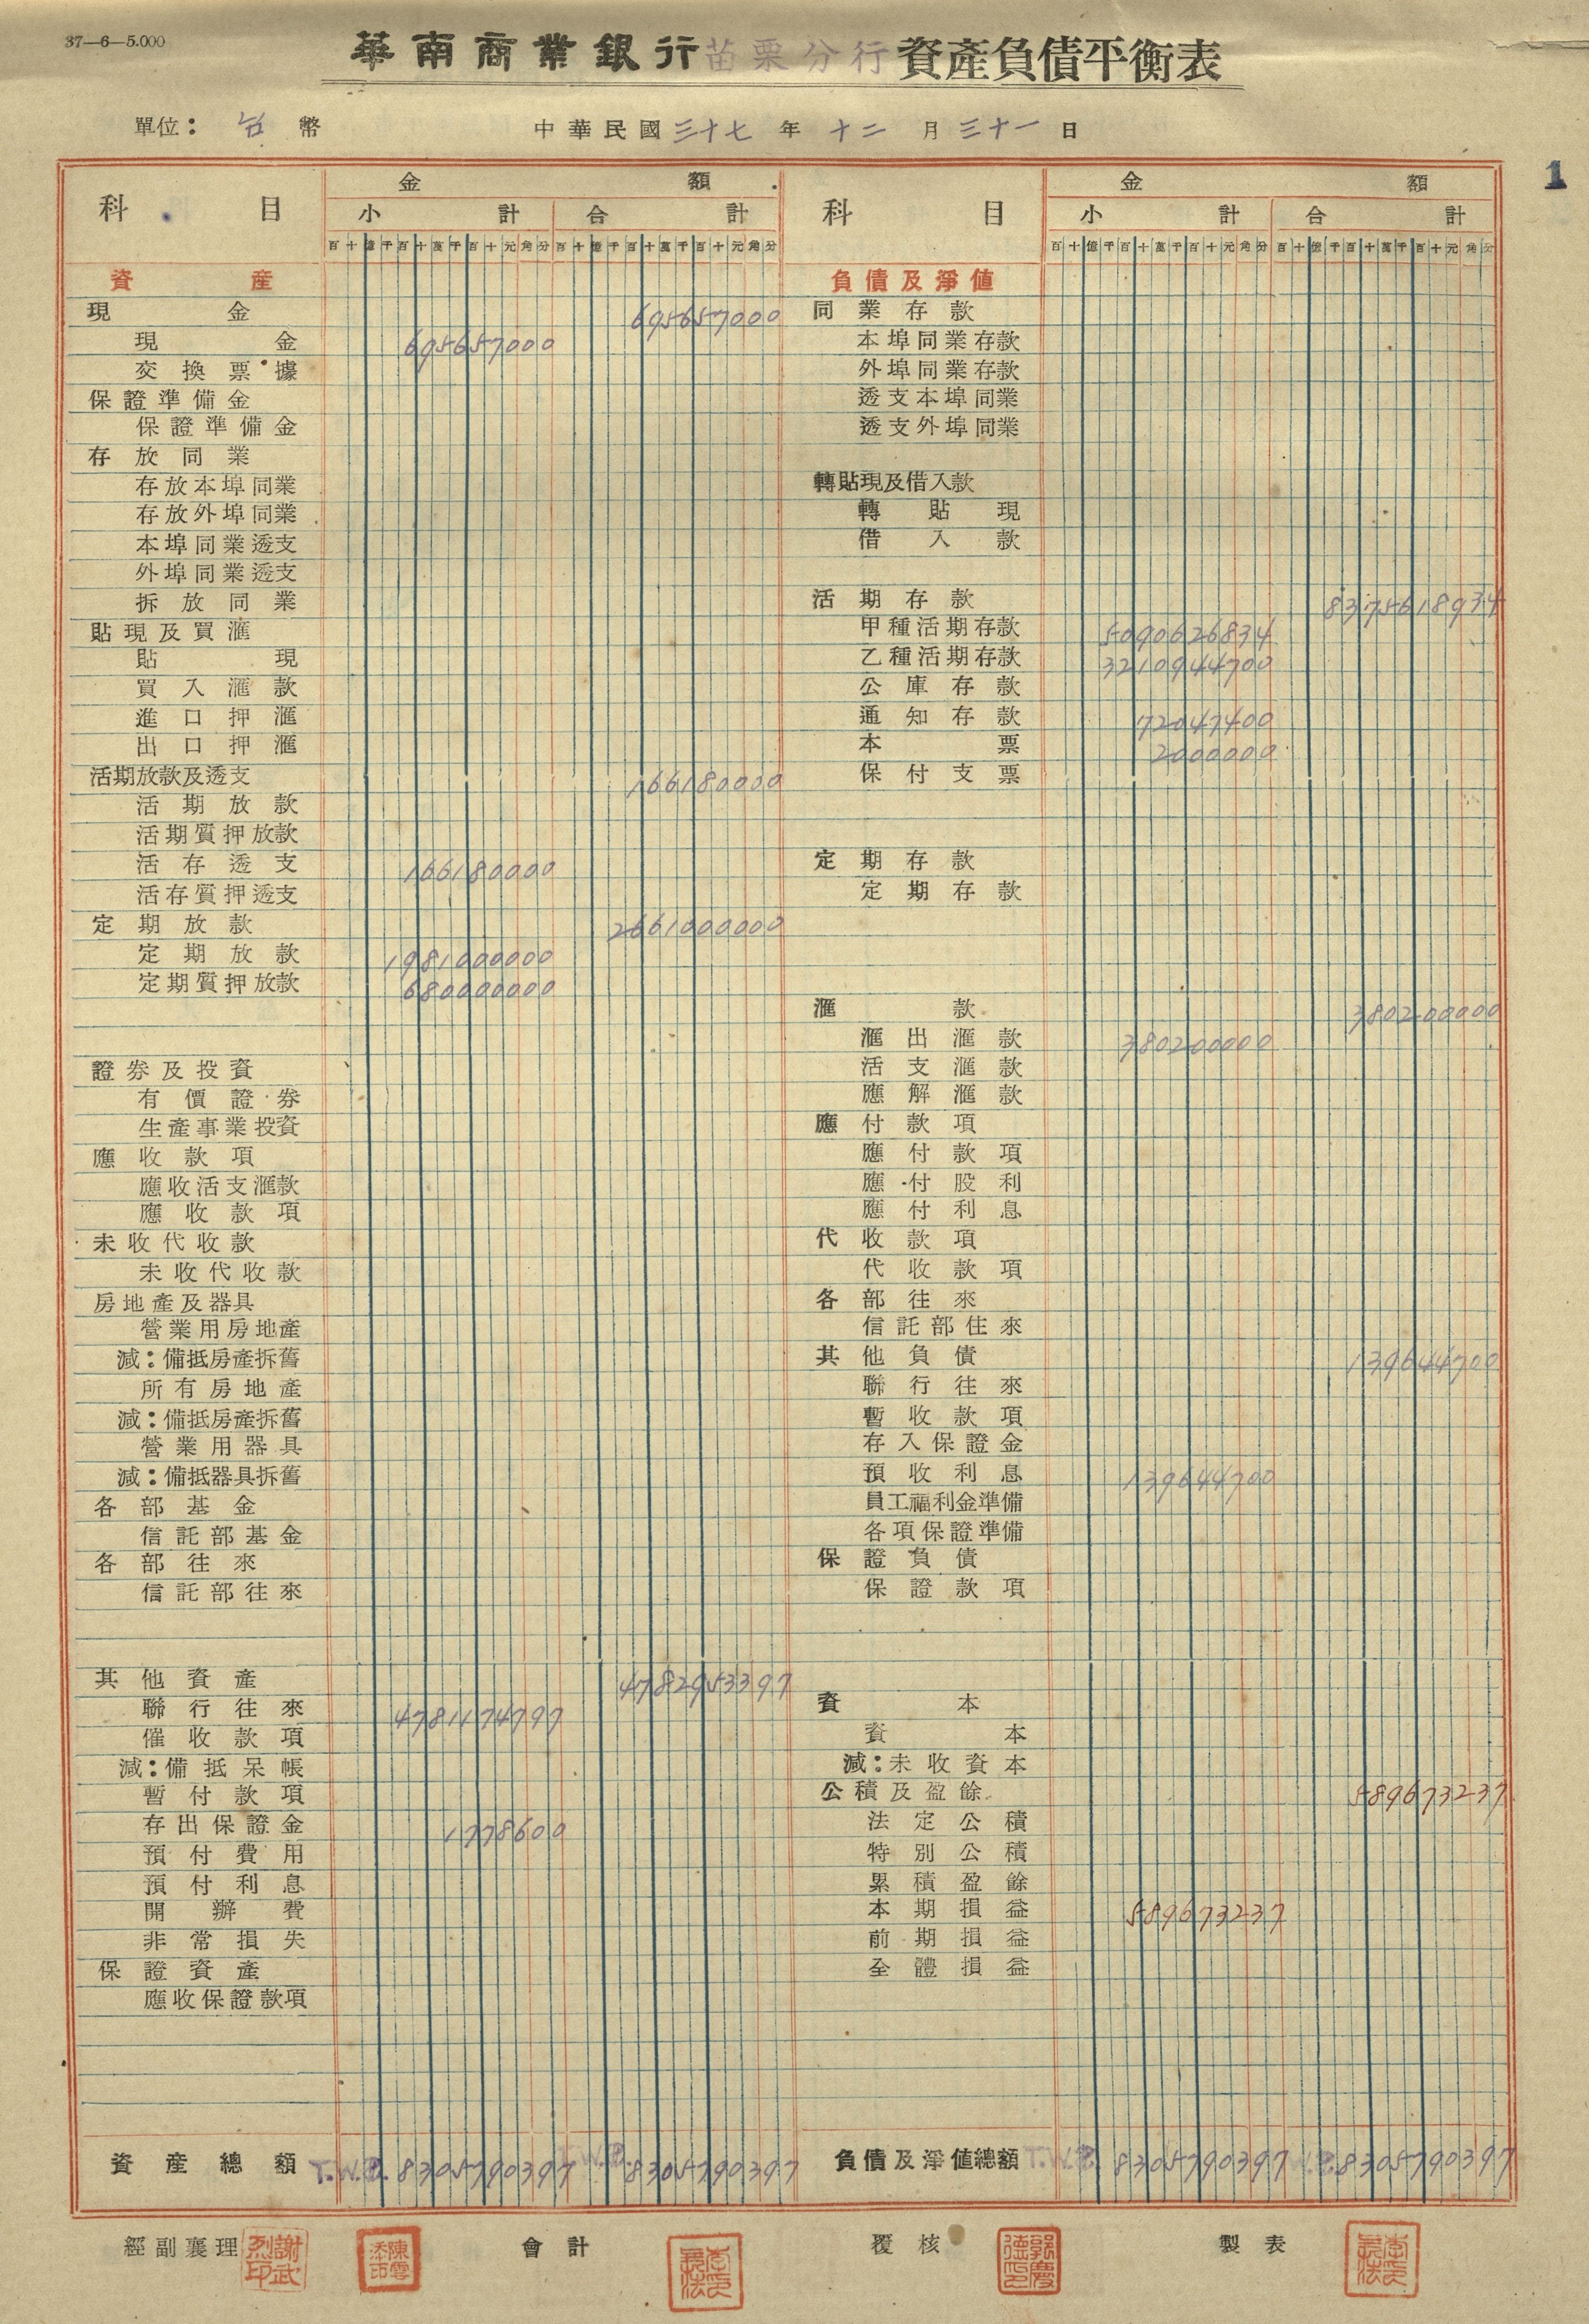 37—6—5.000
華南商業銀行苗栗分行資產負債平衡表
單位：台幣 中華民國三十七年十二月三十一日
1
科目 金額 科目 金額
小計 合計 小計 合計
百十億千百十萬千百十元角分 百十億千百十萬千百十元角分 百十億千百十萬千百十元角分 百十億千百十萬千百十元角分
資產
現金 695657000
現金 695657000
交換票據
保證準備金
保證準備金
存放同業
存放本埠同業
存放外埠同業
本埠同業透支
外埠同業透支
拆放同業
貼現及買滙
貼現
買入滙款
進口押滙
出口押滙
活期放款及透支 166180000
活期放款
活期質押放款
活存透支 166180000
活存質押透支
定期放款 2661000000
定期放款 1981000000
定期質押放款 680000000
證券及投資
有價證券
生產事業投資
應收款項
應收活支滙款
應收款項
未收代收款
未收代收款
房地產及器具
營業用房地產
減：備抵房產拆舊
所有房地產
減：備抵房產拆舊
營業用器具
減：備抵器具拆舊
各部基金
信託部基金
各部往來
信託部往來
其他資產 4782953397
聯行往來 4781174797
催收款項
減：備抵呆帳
暫付款項
存出保證金 1778600
預付費用
預付利息
開辦費
非常損失
保證資產
應收保證款項
資產總額 T.W.P. 8305790397 T.W.P. 8305790397
負債及淨值
同業存款
本埠同業存款
外埠同業存款
透支本埠同業
透支外埠同業
轉貼現及借入款
轉貼現
借入款
活期存款 8375618934
甲種活期存款 5090626834
乙種活期存款 3210944700
公庫存款
通知存款 72047400
本票 2000000
保付支票
定期存款
定期存款
滙款 380200000
滙出滙款 380200000
活支滙款
應解滙款
應付款項
應付款項
應付股利
應付利息
代收款項
代收款項
各部往來
信託部住來
其他負債 139644700
聯行往來
暫收款項
存入保證金
預收利息 139644700
員工福利金準備
各項保證準備
保證負債
保證款項
資本
資本
減：未收資本
公積及盈餘 589673237
法定公積
特別公積
累積盈餘
本期損益 589673237
前期損益
全體損益
負債及淨值總額 T.W.P. 8305790397 T.W.P. 8305790397
經副襄理 謝武烈印 陳雲添印 會計 覆核 製表